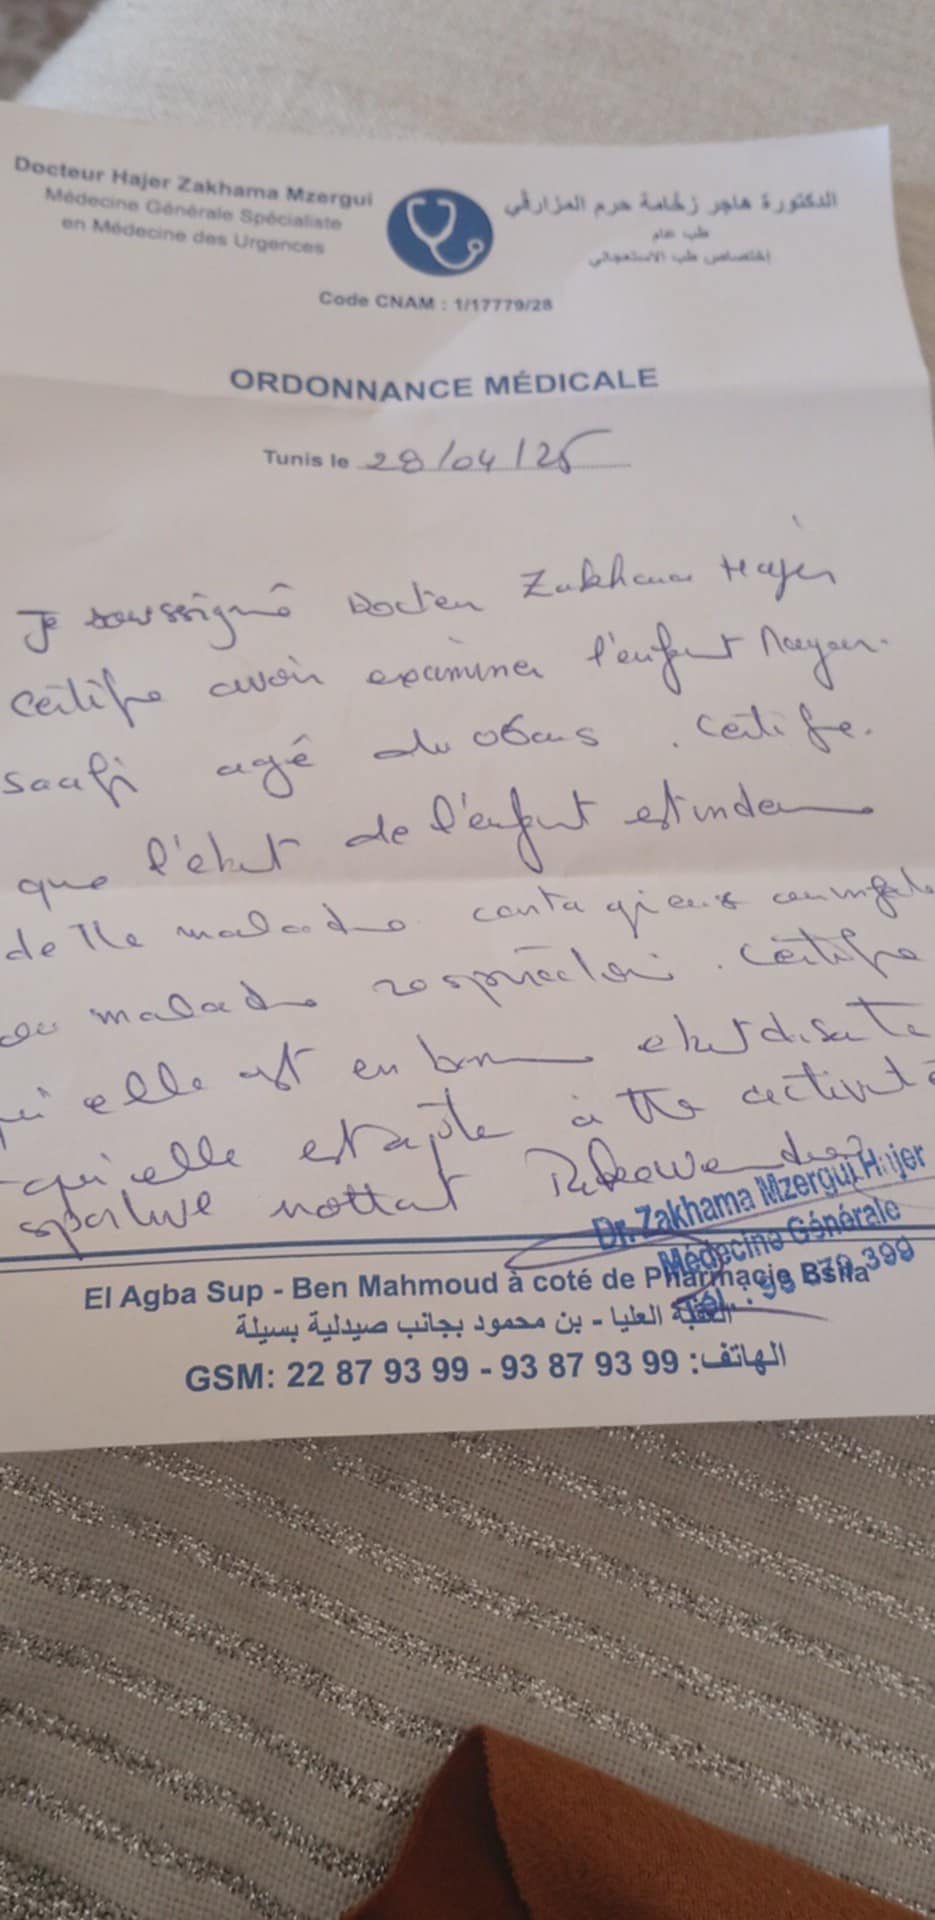 Docteur Hajer Zakhama Mzergui
Médecine Générale Spécialiste
en Médecine des Urgences
الدكتورة هاجر زخامة حرم المزارقي
طب عام
إختصاص طب الاستعجالي
Code CNAM : 1/17779/28
ORDONNANCE MÉDICALE
Tunis le 28/04/25
Je soussigné Docteur Zakhama Hajer
Certifie avoir examiner l'enfant Rayan
Saafi agé de 06ans . Certifie.
que l'état de l'enfant est indem
de tte maladie contagieuse
maladie respiratoire . Certifie
qu'elle est en bon etat de sante
qu'elle est apte à tte activité
sportive nottat Taekwondo
Dr. Zakhama Mzergui Hajer
Médecine Générale
El Agba Sup - Ben Mahmoud à coté de Pharmacie Bsila
العقبة العليا - بن محمود بجانب صيدلية بسيلة
GSM: 22 87 93 99 - 93 87 93 99 :الهاتف